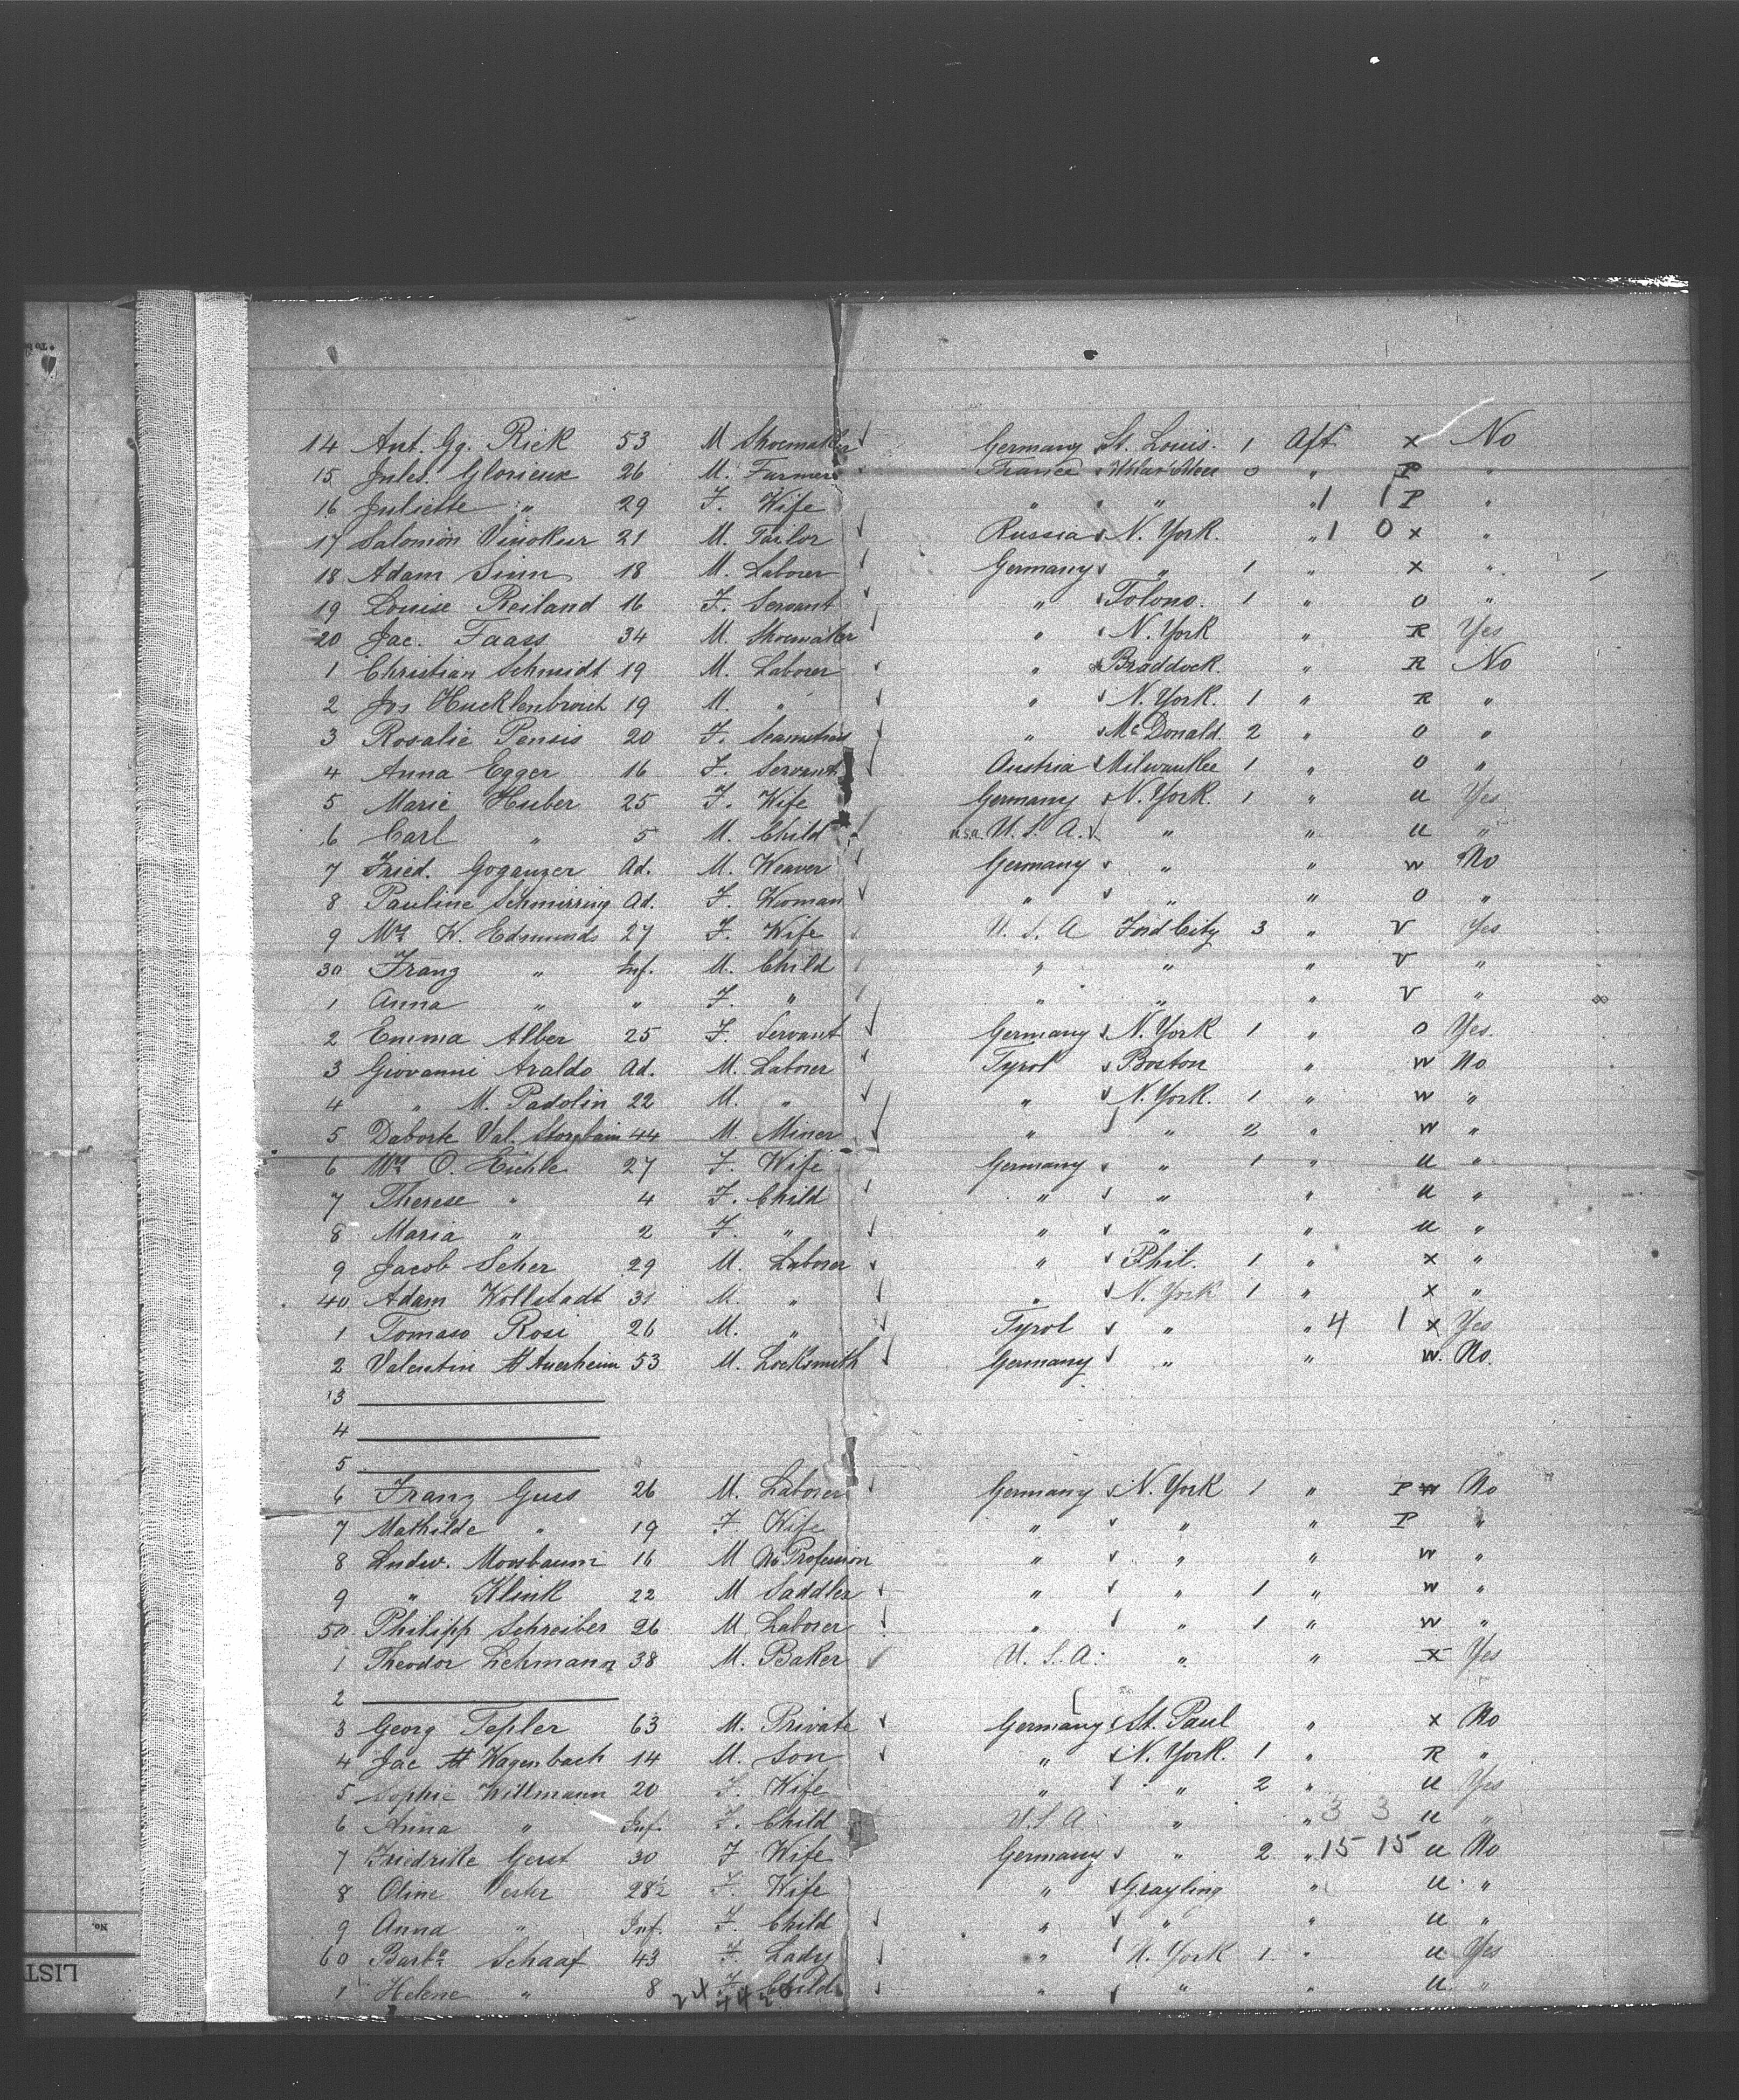 14 Ant. Gg. Rick 53 M Shoemaker Germany St. Louis. 1 Aft x No
15 Jules. Glorieux 26 M. Farmer France 0 " P "
16 Juliette " 29 F. Wife " " " 1 1 P "
17 Salomon Vinokur 21 M. Tailor Russia N. York. " 1 0 x "
18 Adam Sinn 18 M. Laborer Germany " 1 " x "
19 Louise Reiland 16 F. Servant " Tolono. 1 " O "
20 Jac. Faass 34 M. Shoemaker " N. York " R Yes
1 Christian Schmidt 19 M. Laborer " Braddock. " R No
2 Jos Hucklenbroich 19 M. " " N. York. 1 " R "
3 Rosalie Pensis 20 F. Seamstress " Mc Donald. 2 " O "
4 Anna Egger 16 F. Servant Austria Milwaukee 1 " O "
5 Marie Huber 25 F. Wife Germany N. York. 1 " U Yes
6 Carl " 5 M. Child U.S.A. U. S. A. " " U "
7 Fried. Goganzer Ad. M. Weaver Germany " " W No
8 Pauline Schmirring Ad. F. Woman " " " O "
9 Mrs. W. Edmunds 27 F. Wife U. S. A Ford City 3 " V Yes
30 Franz " Inf. M. Child " " " V "
1 Anna " " F. " " " " V "
2 Emma Alber 25 F. Servant Germany N. York 1 " O Yes
3 Giovanni Avaldo Ad. M. Laborer Tyrol Boston " W No
4 " M. Padolin 22 M. " " N. York. 1 " W "
5 Val. 44 M Miner " " 2 " W "
6 Mrs. O. Eichle 27 F. Wife Germany " 1 " U "
7 Therese " 4 F. Child " " " U "
8 Maria " 2 F. " " " " U "
9 Jacob Scher 29 M. Laborer " Phil. 1 " x "
40 Adam Wollstadt 31 M. " " N. York 1 " x "
1 Tomaso Rosi 26 M. " Tyrol " " 4 1 x Yes
2 Valentin Auerheim 53 M. Locksmith Germany " " W. No.
3
4
5
6 Franz Guss 26 M. Laborer Germany N. York 1 " P W No
7 Mathilde " 19 F. Wife " " " P "
8 Ludw. Moosbaum 16 M No Profession " " " W "
9 " Klink 22 M Saddler " " 1 " W "
50 Philipp Schreiber 26 M. Laborer " " 1 " W "
1 Theodor Lehmann 38 M. Baker U. S. A. " " X Yes
2
3 Georg Tepler 63 M. Private Germany St. Paul " x No
4 Jac Wagenbach 14 M. Son " N. York. 1 " R "
5 Sophie Willmann 20 F. Wife " " 2 " U Yes
6 Anna " Inf. F. Child U.S.A. " " 3 3 U "
7 Friedrike Gerst 30 F Wife Germany " 2 " 15 15 U No
8 Oline Vester 28½ F. Wife " Grayling " U "
9 Anna " Inf. F. Child " " " U "
60 Barba. Schaaf 43 F. Lady " N. York 1 " U Yes
1 Helene " 8 F. Child " " " U "
LIST
No.